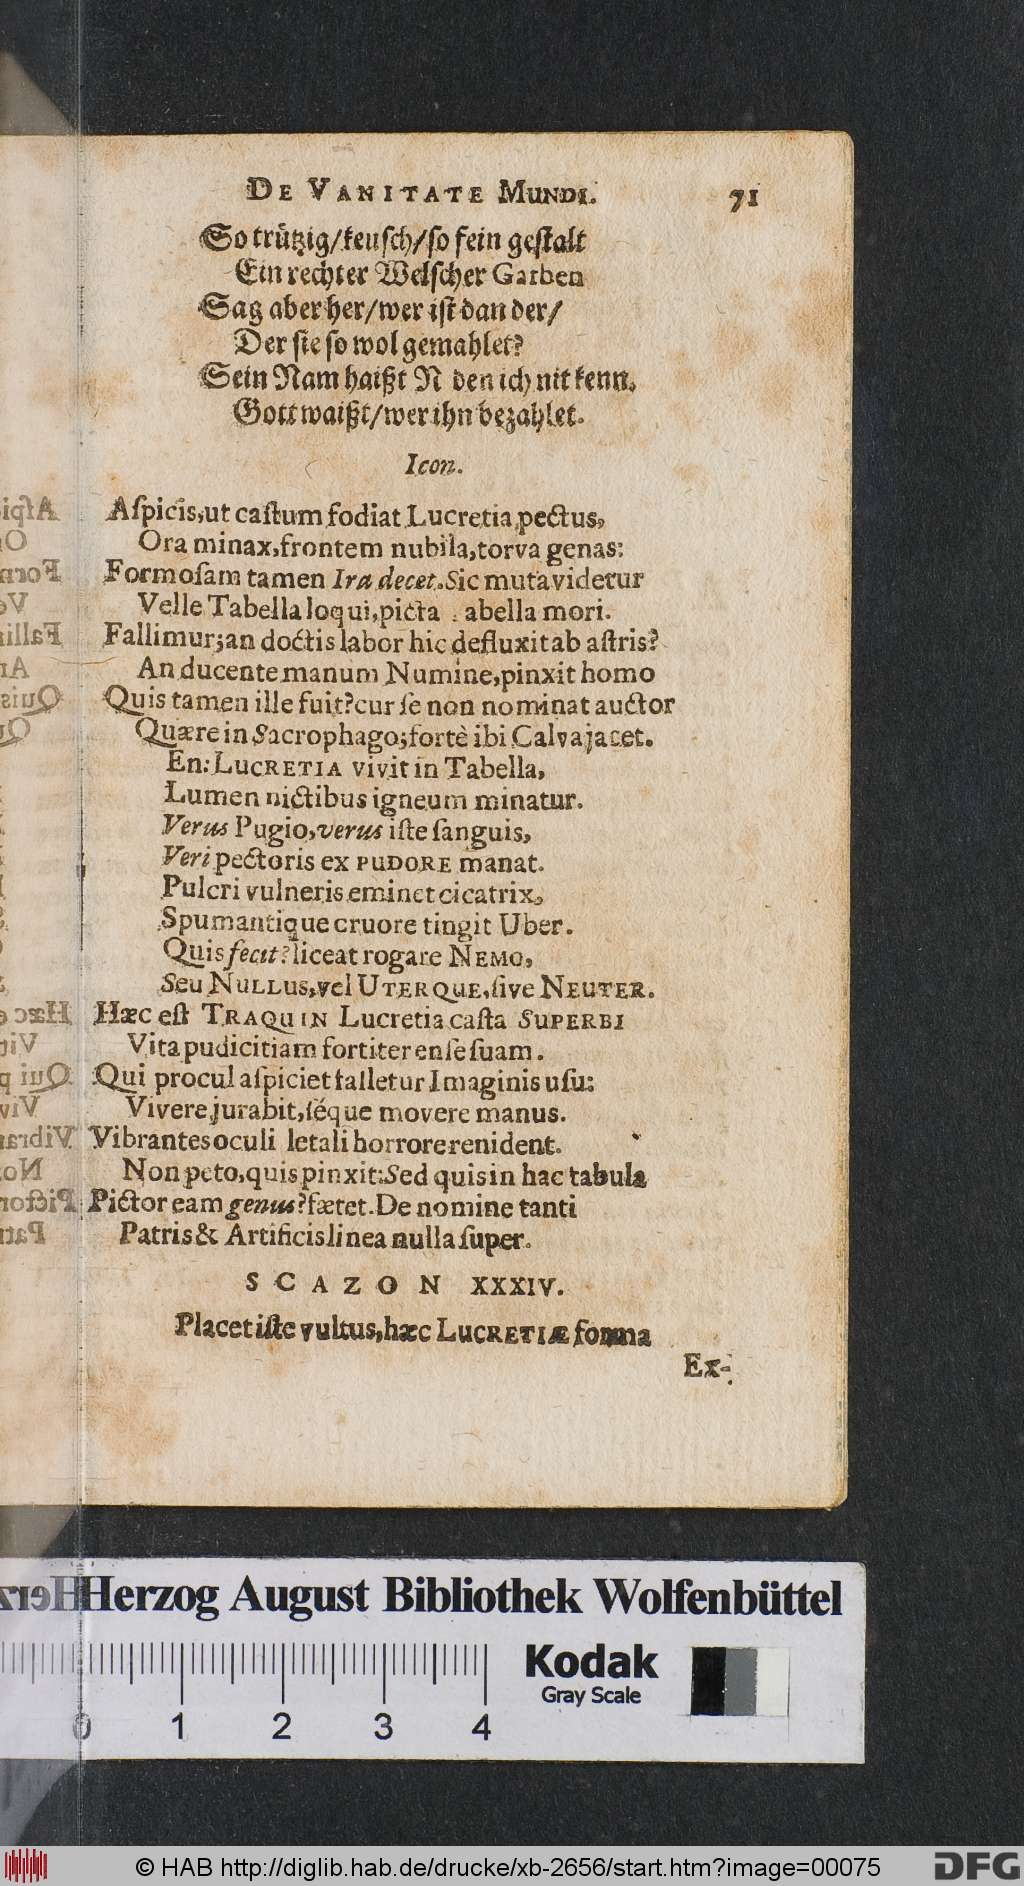 DE VANITATE MUNDI. 71
So trützig/keusch/so fein gestalt
Ein rechter Welscher Garben
Sag aber her/wer ist dan der/
Der sie so wol gemahlet?
Sein Nam haißt N den ich nit kenn.
Gott waißt/wer ihn bezahlet.
Icon.
Aſpicis,ut caſtum fodiat Lucretia pectus,
Ora minax,frontem nubila,torva genas:
Formoſam tamen Ira decet.Sic muta videtur
Velle Tabella loqui,picta abella mori.
Fallimur;an doctis labor hic defluxit ab aſtris?
An ducente manum Numine,pinxit homo
Quis tamen ille fuit?cur ſe non nominat auctor
Quære in Sacrophago;fortè ibi Calva jacet.
En: LUCRETIA vivit in Tabella,
Lumen nictibus igneum minatur.
Verus Pugio,verus iſte ſanguis,
Veri pectoris ex PUDORE manat.
Pulcri vulneris eminet cicatrix,
Spumantique cruore tingit Uber.
Quis fecit? liceat rogare NEMO,
Seu NULLUS,vel UTERQUE,ſive NEUTER.
Hæc eſt TRAQUIN Lucretia caſta SUPERBI
Vita pudicitiam fortiter enſe ſuam.
Qui procul aſpiciet falletur Imaginis uſu:
Vivere jurabit,ſéque movere manus.
Vibrantes oculi letali horrore renident.
Non peto,quis pinxit:Sed quis in hac tabula
Pictor eam genus?fætet.De nomine tanti
Patris & Artificis linea nulla ſuper.
SCAZON XXXIV.
Placet iſte vultus,hæc LUCRETIÆ forma
Ex-
Herzog August Bibliothek Wolfenbüttel
Kodak
Gray Scale
0 1 2 3 4
© HAB http://diglib.hab.de/drucke/xb-2656/start.htm?image=00075
DFG